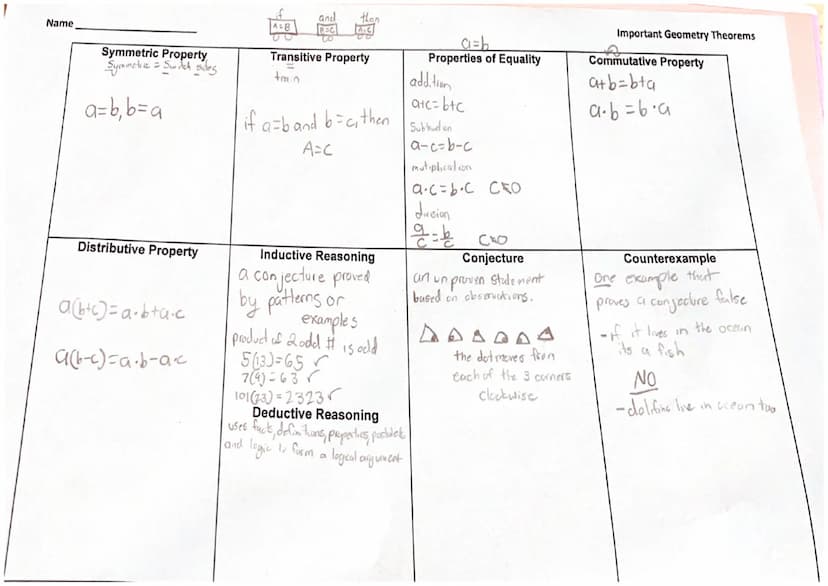 if and then
A=B B=C A=C
Name
Important Geometry Theorems
Symmetric Property
Symmetric = Switch sides
a=b, b=a
Transitive Property
train
if a=b and b=c, then
A=C
a=b
Properties of Equality
addition
a+c=b+c
Subtraction
a-c=b-c
multiplication
a·c=b·c
division
a/c=b/c
Commutative Property
a+b=b+a
a·b=b·a
Distributive Property
a(b+c)=a·b+a·c
a(b-c)=a·b-a·c
Inductive Reasoning
a conjecture proved
by patterns or
examples
product of 2 odd # is odd
5(13)=65 ✓
7(9)=63 ✓
101(23)=2323 ✓
Deductive Reasoning
uses fact, definitions, properties, postulates
and logic to form a logical argument
Conjecture
an unproven statement
based on observations.
the dot moves from
each of the 3 corners
clockwise
Counterexample
One example that
proves a conjecture false
- if it lives in the ocean
its a fish
NO
- dolfins live in ocean too